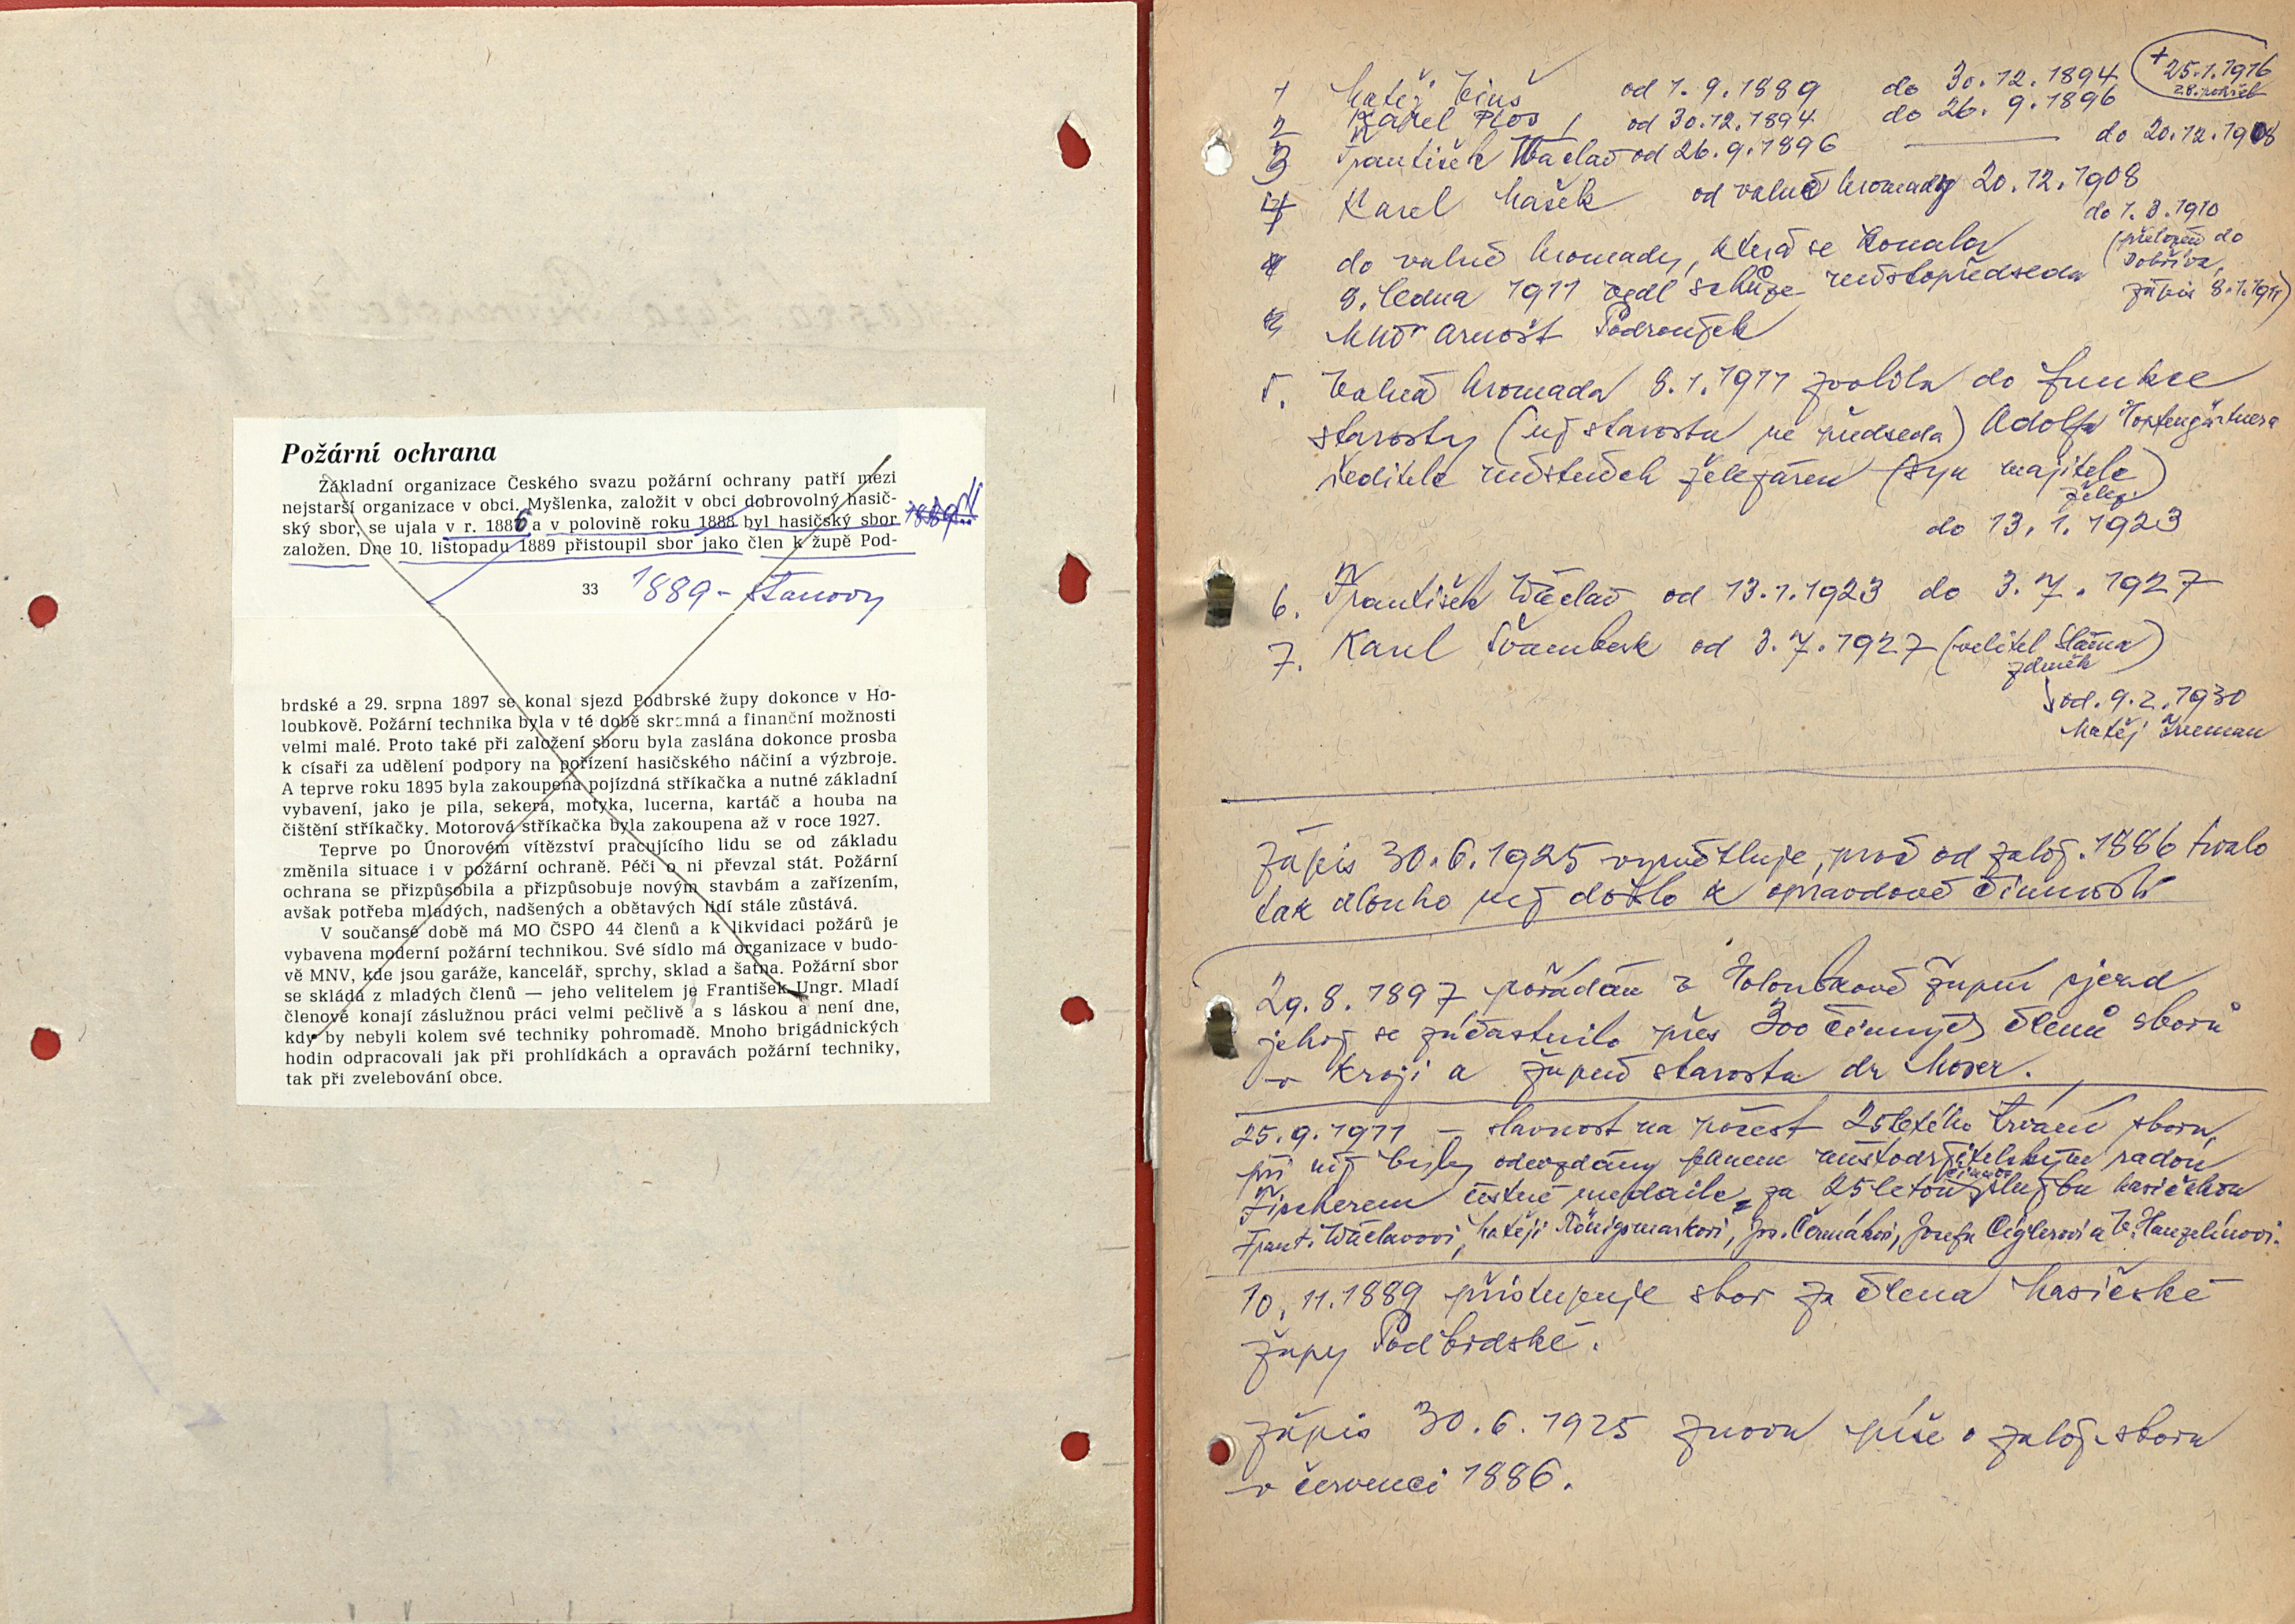 Požární ochrana
Základní organizace Českého svazu požární ochrany patří mezi
nejstarší organizace v obci. Myšlenka, založit v obci dobrovolný hasič-
ský sbor, se ujala v r. 1886 a v polovině roku 1888 byl hasičský sbor 1889!!
založen. Dne 10. listopadu 1889 přistoupil sbor jako člen k župě Pod-
33 1889 - Stanovy
brdské a 29. srpna 1897 se konal sjezd Podbrské župy dokonce v Ho-
loubkově. Požární technika byla v té době skromná a finanční možnosti
velmi malé. Proto také při založení sboru byla zaslána dokonce prosba
k císaři za udělení podpory na pořízení hasičského náčiní a výzbroje.
A teprve roku 1895 byla zakoupena pojízdná stříkačka a nutné základní
vybavení, jako je pila, sekera, motyka, lucerna, kartáč a houba na
čištění stříkačky. Motorová stříkačka byla zakoupena až v roce 1927.
Teprve po Únorovém vítězství pracujícího lidu se od základu
změnila situace i v požární ochraně. Péči o ni převzal stát. Požární
ochrana se přizpůsobila a přizpůsobuje novým stavbám a zařízením,
avšak potřeba mladých, nadšených a obětavých lidí stále zůstává.
V součansé době má MO ČSPO 44 členů a k likvidaci požárů je
vybavena moderní požární technikou. Své sídlo má organizace v budo-
vě MNV, kde jsou garáže, kancelář, sprchy, sklad a šatna. Požární sbor
se skládá z mladých členů — jeho velitelem je František Ungr. Mladí
členové konají záslužnou práci velmi pečlivě a s láskou a není dne,
kdy by nebyli kolem své techniky pohromadě. Mnoho brigádnických
hodin odpracovali jak při prohlídkách a opravách požární techniky,
tak při zvelebování obce.
1 Matěj od 1.9.1889 do 30.12.1894 + 25.1.1916
28. pohřeb
2 Karel od 30.12.1894 do 26.9.1896
3 František Wáclav od 26.9.1896 do 20.12.1908
4 Karel Mašek od valné hromady 20.12.1908
do 1.8.1910
(přeložen do
Dobříva,
zápis 8.1.1911)
do valné hromady, která se konala
8. ledna 1911 vedl schůze místopředseda
MUDr Arnošt Podroužek
5. Valná hromada 8.1.1911 zvolila do funkce
starosty (už starosta ne předseda) Adolfa Hopfengärtnera
ředitele místních železáren (syn majitele
želez.)
do 13.1.1923
6. František Wáclav od 13.1.1923 do 3.7.1927
7. Karel Švamberk od 3.7.1927 (velitel Sláma
Zdeněk)
od. 9.2.1930
Matěj Zreman
Zápis 30.6.1925 vysvětluje, proč od založ. 1886 trvalo
tak dlouho než došlo k opravdové činnosti
29.8.1897 pořádán v Holoubkově župní sjezd
jehož se zúčastnilo přes 300 činných členů sborů
v kroji a župní starosta dr Moser.
25.9.1911 - slavnost na počest 25letého trvání sboru,
při níž byly odevzdány panem místodržitelským radou
Fischerem čestné medaile za 25letou činnou službu hasičskou
Frant. Wáclavovi, Matěji Königsmarkovi, Jos. Čermákovi, Josefu Cíglerovi a V. Hanzelínovi.
10.11.1889 přistupuje sbor za člena hasičské
župy Podbrdské.
Zápis 30.6.1925 znovu píše o založ. sboru
v červenci 1886.